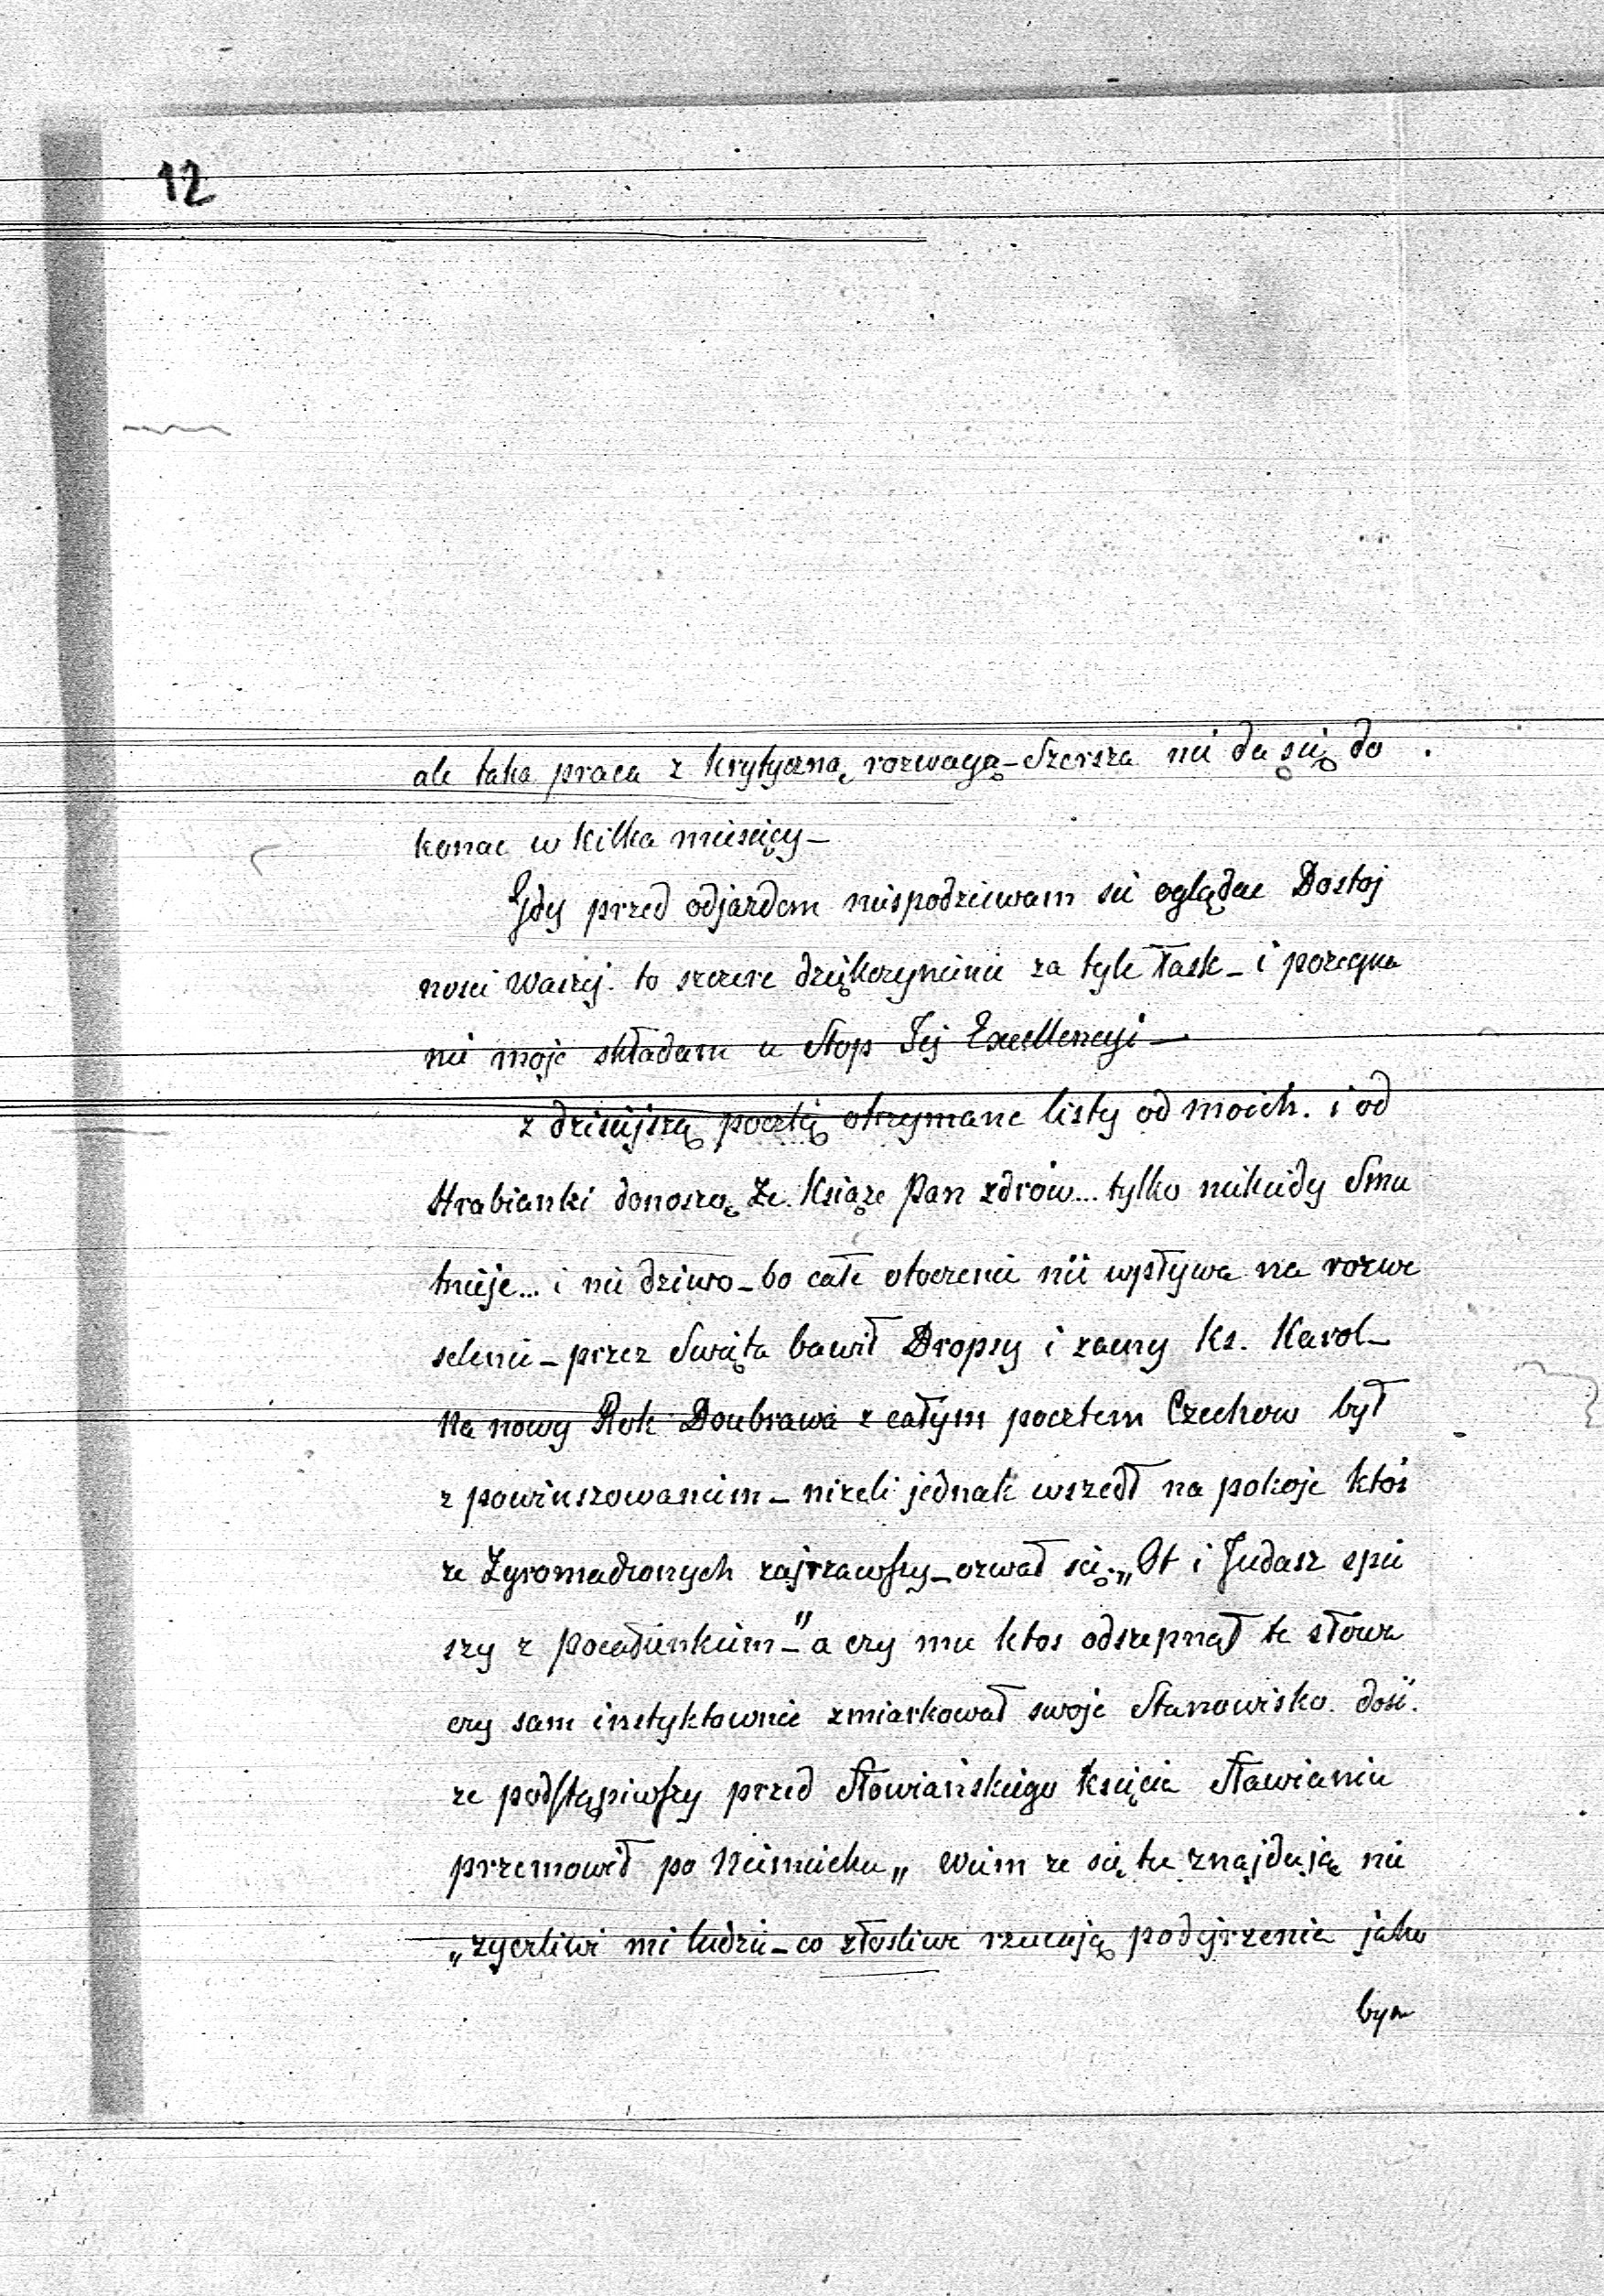 12
ale taka praca z krytyczną rozwagą – Szersza nie da się do
konac w kilka miesięcy –
Gdy przed odjazdem niespodziewam sie oglądac Dostoj
nosci Waszej. to szczere dziękczynienie za tyle łask – i pozegna
nie moje składam u Stop Jej Excellencyi –
z dzisiejszą pocztą otrzymane listy od moich. i od
Hrabianki donoszą, Ze. Książe Pan zdrów... tylko niekiedy Smu
tnieje... i nie dziwo – bo całe otoczenie nie wpływa na rozwe
selenie – przez Swięta bawił Dropsy i zacny Ks. Karol –
Na nowy Rok Doubrawa z całym pocztem Czechow był
z powinszowaniem – nizeli jednak wszedł na pokoje ktoś
ze Zgromadzonych zajrzawszy – ozwał się. „Ot i Judasz spie
szy z pocałunkiem –" a czy mu ktos odszepnął te słowa
czy sam instyktownie zmiarkował swoje Stanowisko. dość.
ze podstąpiwszy przed Słowiańskiego księcia Sławianin
przemowił po Niemiecku „ Wiem ze się tu znajdują nie
„zyczliwi mi ludzie – co złosliwe rzucają podejrzenia jako
bym